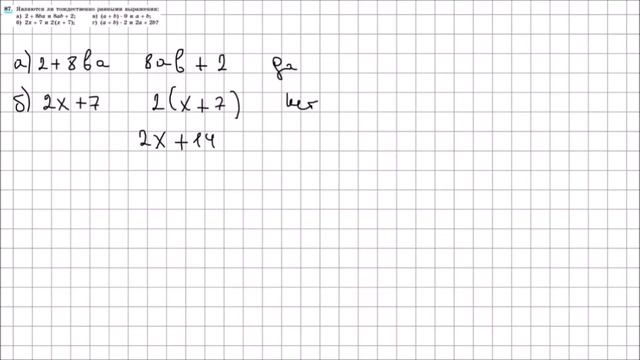 87. Являются ли тождественно равными выражения:
а) 2 + 8ba и 8ab + 2; в) (a + b) · 0 и a + b;
б) 2x + 7 и 2(x + 7); г) (a + b) · 2 и 2a + 2b?
а) 2 + 8ba 8ab + 2 да
б) 2x + 7 2(x + 7) нет
2x + 14